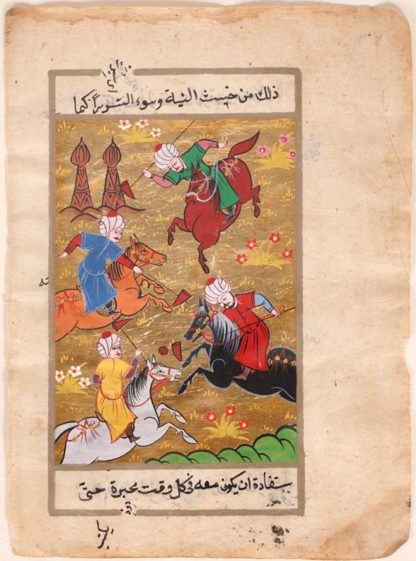 ذلك من خبث النية وسوء كما
ان يكون معه في كل وقت محبرة حتى